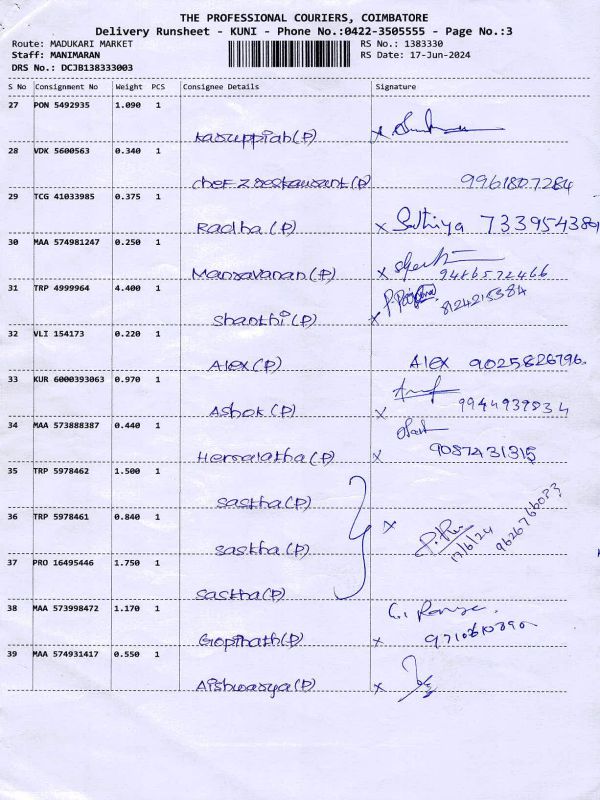 THE PROFESSIONAL COURIERS, COIMBATORE
Delivery Runsheet - KUNI - Phone No.:0422-3505555 - Page No.:3
Route: MADUKARI MARKET RS No.: 1383330
Staff: MANIMARAN RS Date: 17-Jun-2024
DRS No.: DCJB138333003
S No Consignment No Weight PCS Consignee Details Signature
27 PON 5492935 1.090 1
Karuppiah(P) x
28 VDK 5600563 0.340 1
chef z restaurant(P) 9961807284
29 TCG 41033985 0.375 1
Radha(P) x Sathiya 733954380
30 MAA 574981247 0.250 1
Mansavanan(P) x 9486572466
31 TRP 4999964 4.400 1
Shanthi(P) x 8124215384
32 VLI 154173 0.220 1
Alex(P) Alex 9025826796
33 KUR 6000393063 0.970 1
Ashok(P) x 9944939834
34 MAA 573888387 0.440 1
Hemalatha(P) x 9087431315
35 TRP 5978462 1.500 1
Sastha(P)
36 TRP 5978461 0.840 1
x 17/6/24 9626766033
Sastha(P)
37 PRO 16495446 1.750 1
Sastha(P)
38 MAA 573998472 1.170 1
Gopinath(P) x
39 MAA 574931417 0.550 1
Aishwarya(P) x